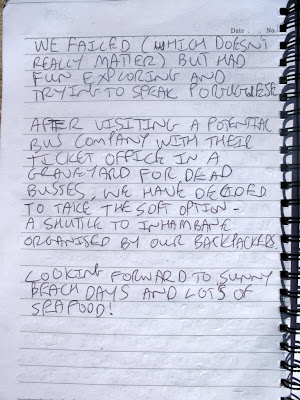 Date No.
WE FAILED (WHICH DOESN'T
REALLY MATTER) BUT HAD
FUN EXPLORING AND
TRYING TO SPEAK PORTUGUESE
AFTER VISITING A POTENTIAL
BUS COMPANY WITH THEIR
TICKET OFFICE IN A
GRAVEYARD FOR DEAD
BUSSES, WE HAVE DECIDED
TO TAKE THE SOFT OPTION -
A SHUTTLE TO INHAMBANE
ORGANISED BY OUR BACKPACKERS.
LOOKING FORWARD TO SUNNY
BEACH DAYS AND LOTS OF
SEAFOOD!